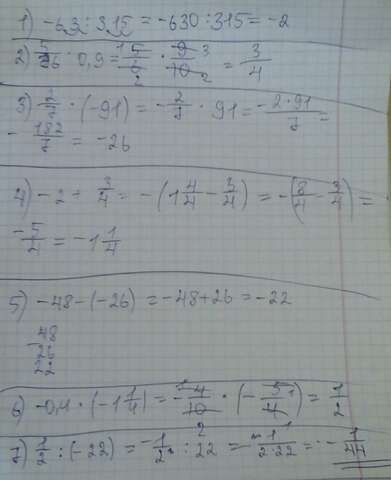 1) -63 : 315 = -630 : 315 = -2
2) 5/6 · 0,9 = 5/6 · 9/10 = 3/4
3) 2/7 · (-91) = -2/7 · 91 = -2·91/7 =
-182/7 = -26
4) -2 + 3/4 = -(1 4/4 - 3/4) = -(8/4 - 3/4) =
-5/4 = -1 1/4
5) -48 - (-26) = -48 + 26 = -22
48
26
22
6) -0,4 · (-1 1/4) = -4/10 · (-5/4) = 1/2
7) 1/2 : (-22) = -1/2 : 22 = -1/2·22 = -1/44